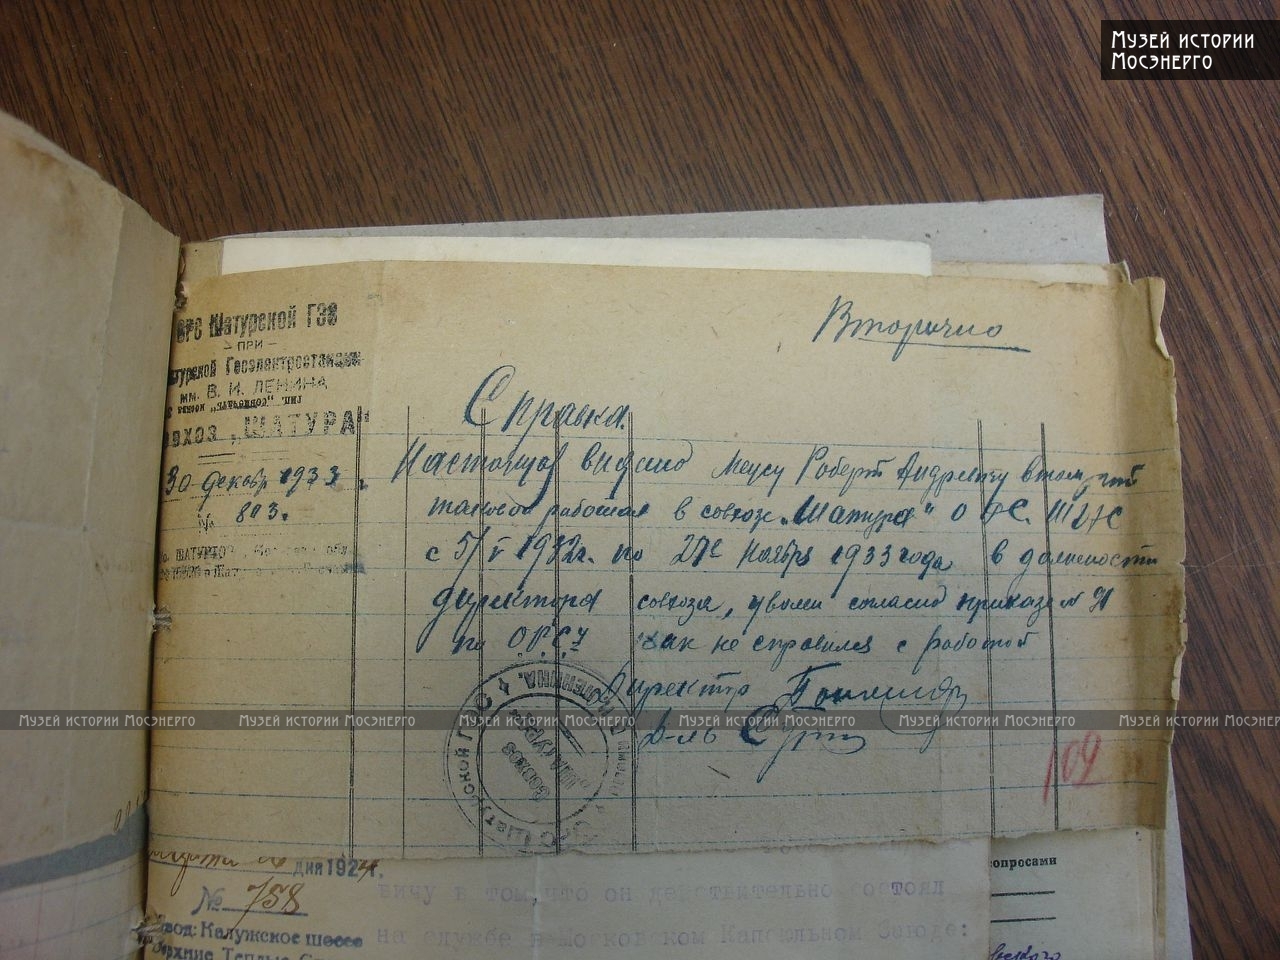 Музей истории
Мосэнерго
ОРС Шатурской ГЭС
— ПРИ —
Шатурской Госэлектростанции
им. В. И. ЛЕНИНА
Совхоз „ШАТУРА"
30 декабр 1933
№ 803.
Вторично
Справка.
Настоящая выдано Меусу Роберт Андреевичу в том, что
таковой работал в совхозе „Шатура"
с 5/V 1932 г. по 27е Ноября 1933 года в должности
директора совхоза, уволен согласно приказа №
по О.Р.С.у как не справился с работой
Директор
Д-ль
Совхоз
„Шатура"
ОРС Шатурской ГЭС ЛЕНИНА.
Музей истории Мосэнерго Музей истории Мосэнерго Музей истории Мосэнерго Музей истории Мосэнерго Музей истории Мосэнерго Музей истории Мосэнерго
109
дня 1924 г.
№ 758
Завод: Калужское шоссе
Верхние Теплые
вичу в том, что он действительно состоял
на службе в Московском Капсюльном Заводе:
вопросами